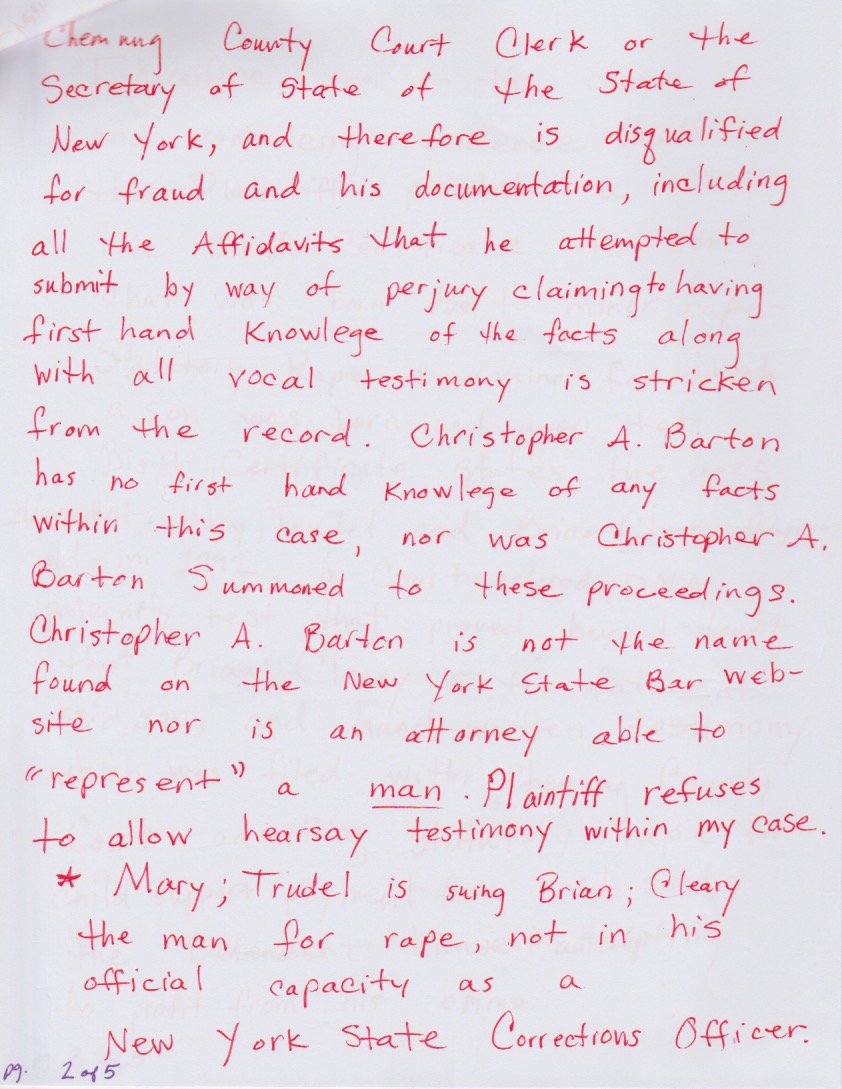 Chemung County Court Clerk or the
Secretary of State of the State of
New York, and therefore is disqualified
for fraud and his documentation, including
all the Affidavits that he attempted to
submit by way of perjury claiming to having
first hand Knowlege of the facts along
with all vocal testimony is stricken
from the record. Christopher A. Barton
has no first hand Knowlege of any facts
within this case, nor was Christopher A.
Barton Summoned to these proceedings.
Christopher A. Barton is not the name
found on the New York State Bar web-
site nor is an attorney able to
"represent" a man. Plaintiff refuses
to allow hearsay testimony within my case.
* Mary; Trudel is suing Brian; Cleary
the man for rape, not in his
official capacity as a
New York State Corrections Officer.
pg. 2 of 5